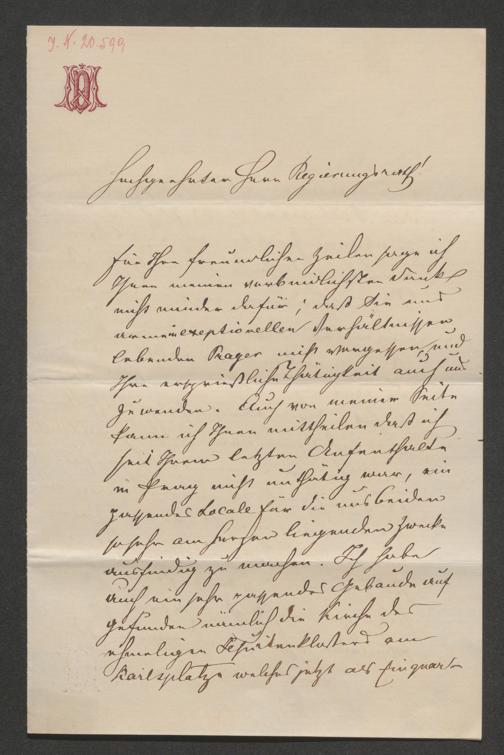 J. N. 20.599
Hochgeehrter Herr Regierungsrath!
für Ihre freundlichen Zeilen sage ich
Ihnen meinen verbindlichsten Dank
nicht minder dafür, daß Sie uns
armen exeptionellen Verhältnissen
lebenden Prager nicht vergessen, und
Ihre ersprießliche Thätigkeit auch uns
zuwenden. Auch von meiner Seite
kann ich Ihnen mittheilen daß ich
seit Ihrem letzten Aufenthalte
in Prag nicht unthätig war, ein
passendes Locale für die uns beiden
so sehr am Herzen liegenden Zwecke
ausfindig zu machen. Ich habe
auch ein sehr passendes Gebäude auf
gefunden nämlich die Kirche des
ehmaligen Jesuitenklosters am
Karlsplatze welches jetzt als Einquar-